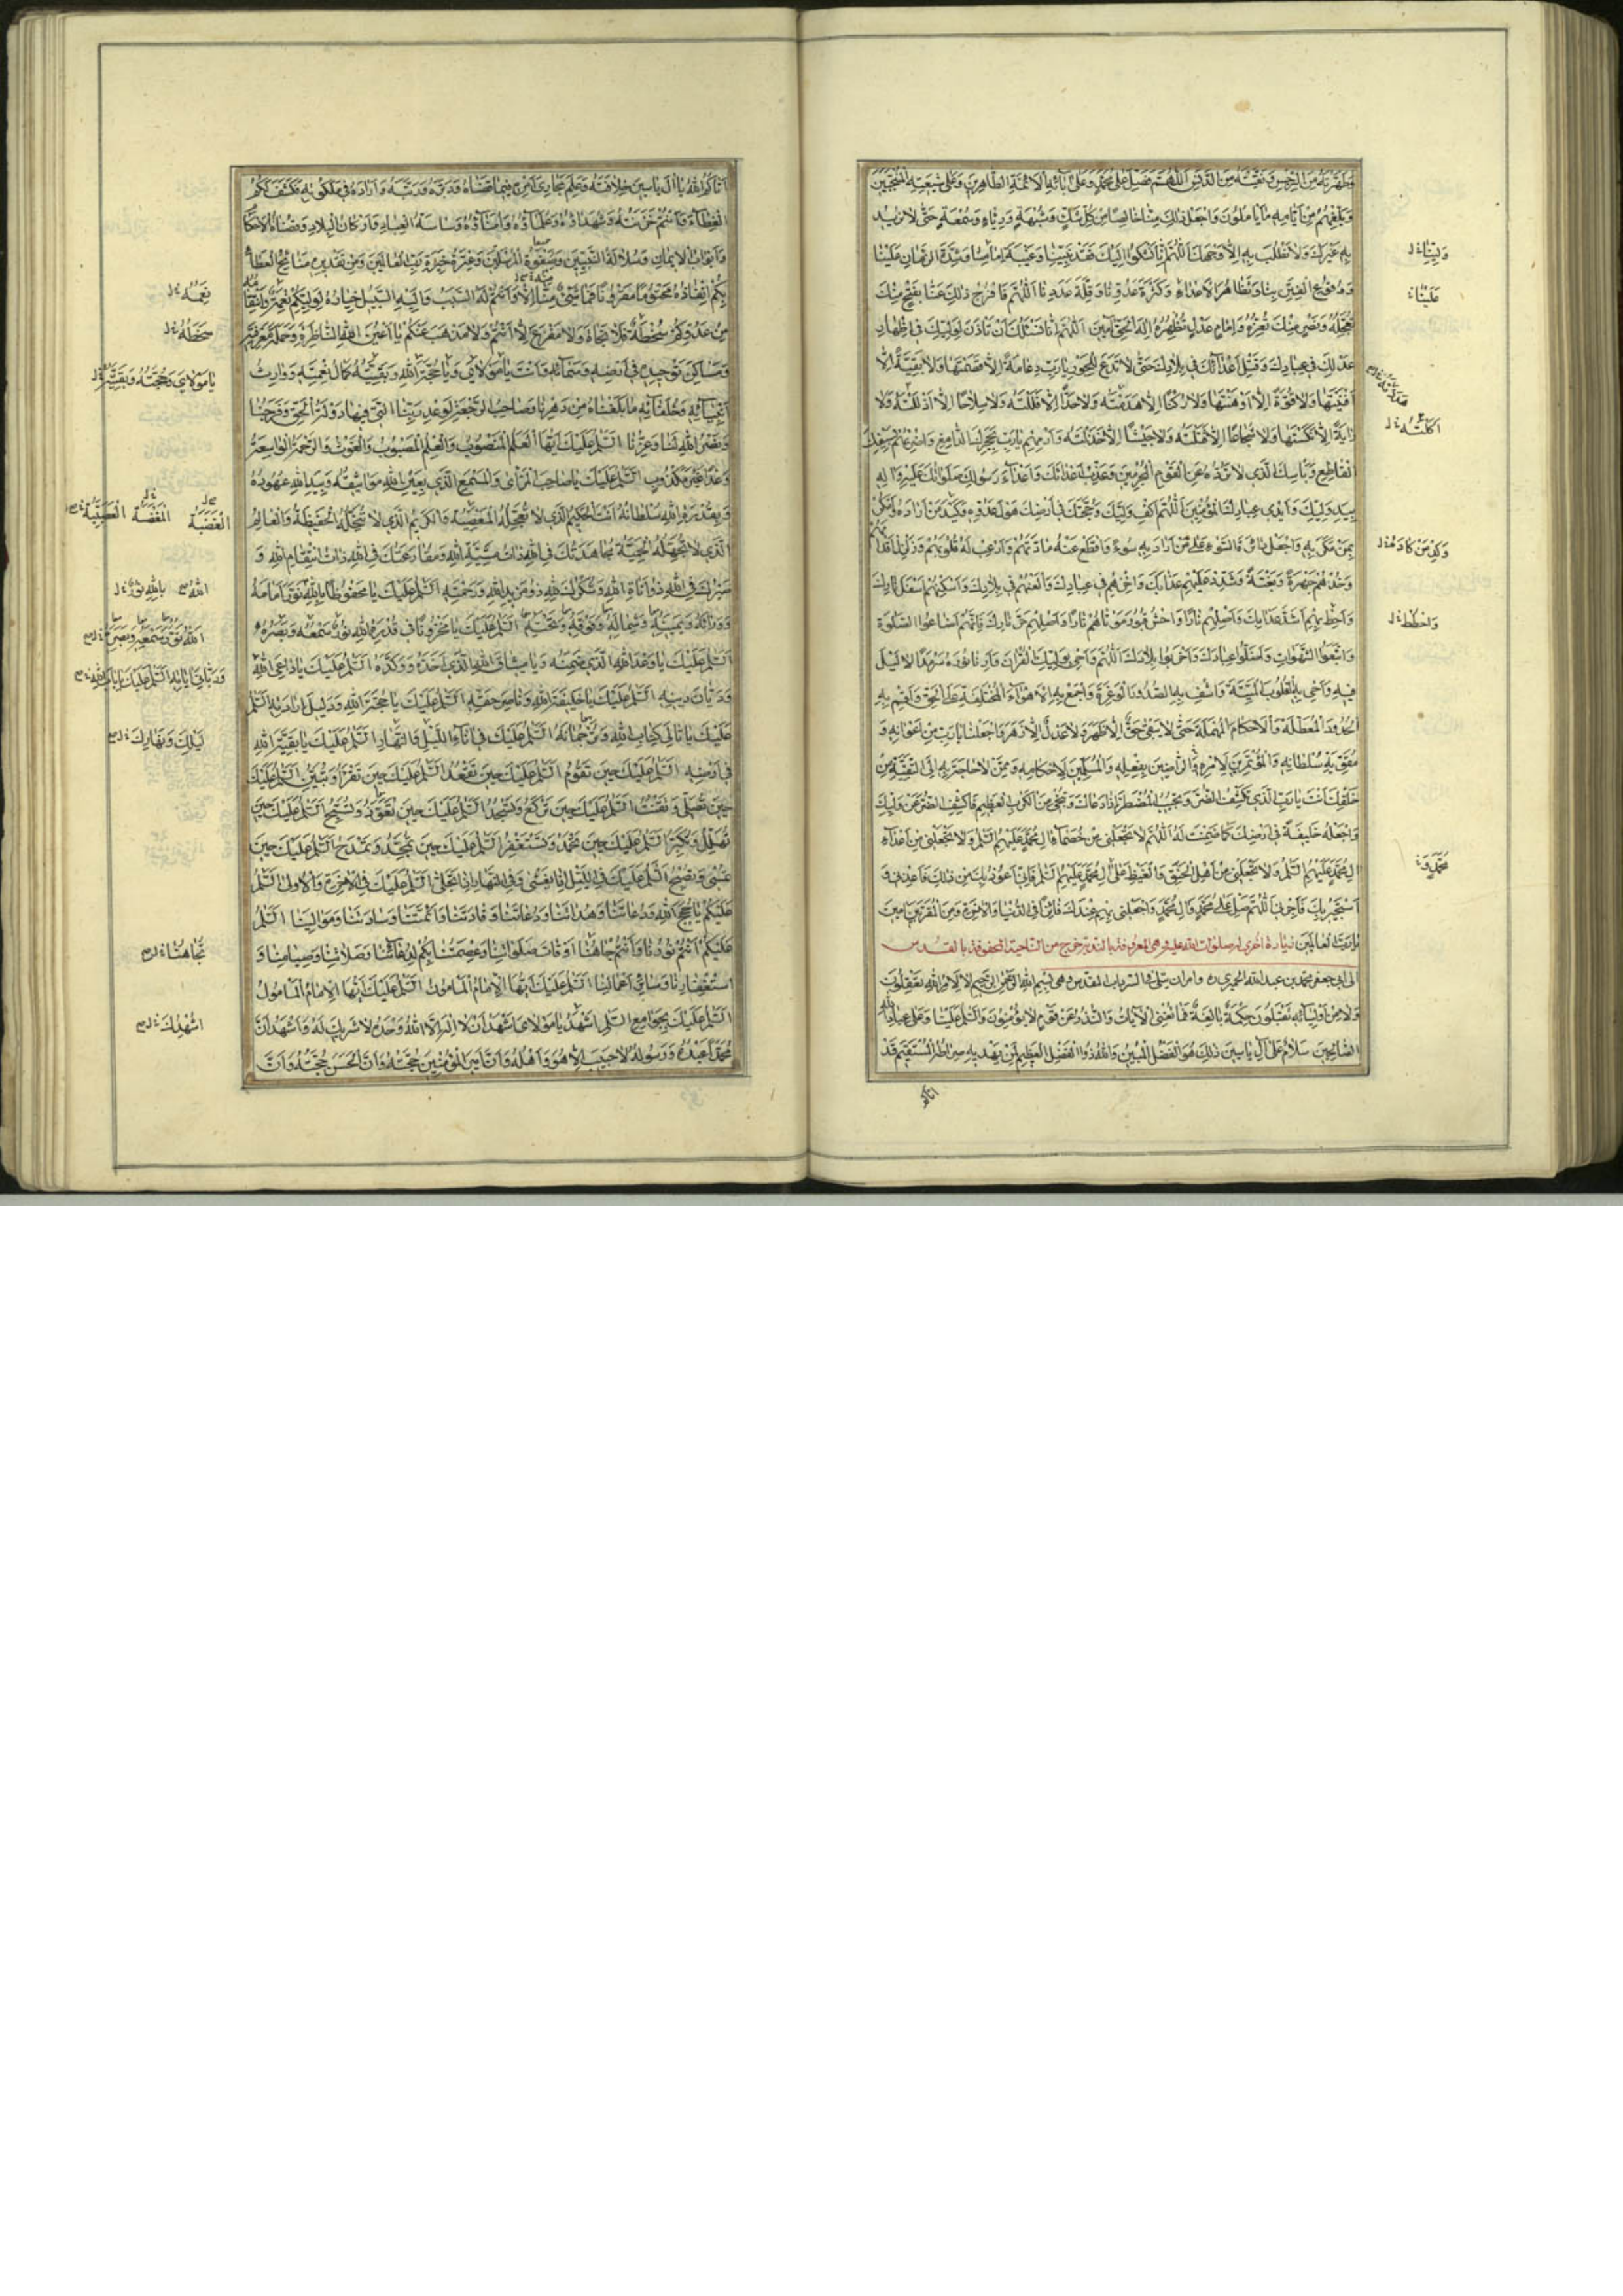 وَطَهِّرْنَا بِهِ مِنَ الرِّجْسِ مِنَ الدَّنَسِ اللّٰهُمَّ صَلِّ عَلَى مُحَمَّدٍ وَعَلَى الْأَئِمَّةِ الطَّاهِرِينَ وَعَلَى شِيعَتِهِ الْمُنْتَجَبِينَ
وَبَلِّغْهُمْ مِنْ آمَالِهِمْ مَا يَأْمُلُونَ وَاجْعَلْ ذٰلِكَ مِنَّا خَالِصًا مِنْ كُلِّ شَكٍّ وَشُبْهَةٍ وَرِيَاءٍ وَسُمْعَةٍ حَتَّى لَا نُرِيدَ
بِهِ غَيْرَكَ وَلَا نَطْلُبَ بِهِ إِلَّا وَجْهَكَ اللّٰهُمَّ إِنَّا نَشْكُو إِلَيْكَ فَقْدَ نَبِيِّنَا وَغَيْبَةَ إِمَامِنَا وَشِدَّةَ الزَّمَانِ عَلَيْنَا
وَوُقُوعَ الْفِتَنِ بِنَا وَتَظَاهُرَ الْأَعْدَاءِ وَكَثْرَةَ عَدُوِّنَا وَقِلَّةَ عَدَدِنَا اللّٰهُمَّ فَافْرُجْ ذٰلِكَ عَنَّا بِفَتْحٍ مِنْكَ
تُعَجِّلُهُ وَنَصْرٍ مِنْكَ تُعِزُّهُ وَإِمَامِ عَدْلٍ تُظْهِرُهُ إِلٰهَ الْحَقِّ آمِينَ اللّٰهُمَّ إِنَّا نَسْئَلُكَ أَنْ تَأْذَنَ لِوَلِيِّكَ فِي إِظْهَارِ
عَدْلِكَ فِي عِبَادِكَ وَقَتْلِ أَعْدَائِكَ فِي بِلَادِكَ حَتَّى لَا تَدَعَ لِلْجَوْرِ يَا رَبِّ دِعَامَةً إِلَّا قَصَمْتَهَا وَلَا بَقِيَّةً إِلَّا
أَفْنَيْتَهَا وَلَا قُوَّةً إِلَّا أَوْهَنْتَهَا وَلَا رُكْنًا إِلَّا هَدَمْتَهُ وَلَا حَدًّا إِلَّا فَلَلْتَهُ وَلَا سِلَاحًا إِلَّا وَلَا
رَايَةً إِلَّا نَكَّسْتَهَا وَلَا شُجَاعًا إِلَّا قَتَلْتَهُ وَلَا جَيْشًا إِلَّا خَذَلْتَهُ وَارْمِهِمْ يَا رَبِّ بِحَجَرِكَ الدَّامِغِ وَاضْرِبْهُمْ بِسَيْفِكَ
الْقَاطِعِ وَبَأْسِكَ الَّذِي لَا تَرُدُّهُ عَنِ الْقَوْمِ الْمُجْرِمِينَ وَعَذِّبْ أَعْدَائَكَ وَأَعْدَاءَ رَسُولِكَ صَلَوَاتُكَ عَلَيْهِ وَآلِهِ
بِيَدِ وَلِيِّكَ وَأَيْدِي عِبَادِكَ الْمُؤْمِنِينَ اللّٰهُمَّ اكْفِ وَلِيَّكَ وَحُجَّتَكَ فِي أَرْضِكَ هَوْلَ عَدُوِّهِ وَكَيْدَ مَنْ أَرَادَهُ وَامْكُرْ
بِمَنْ مَكَرَ بِهِ وَاجْعَلْ دَائِرَةَ السَّوْءِ عَلَى مَنْ أَرَادَ بِهِ سُوءً وَاقْطَعْ عَنْهُ مَادَّتَهُمْ وَأَرْعِبْ لَهُ قُلُوبَهُمْ وَزَلْزِلْ أَقْدَامَهُمْ
وَخُذْهُمْ جَهْرَةً وَبَغْتَةً وَشَدِّدْ عَلَيْهِمْ عَذَابَكَ وَأَخْزِهِمْ فِي عِبَادِكَ وَالْعَنْهُمْ فِي بِلَادِكَ وَأَسْكِنْهُمْ أَسْفَلَ نَارِكَ
وَأَحِطْ بِهِمْ أَشَدَّ عَذَابِكَ وَأَصْلِهِمْ نَارًا وَاحْشُ قُبُورَ مَوْتَاهُمْ نَارًا وَأَصْلِهِمْ حَرَّ نَارِكَ فَإِنَّهُمْ أَضَاعُوا الصَّلٰوةَ
وَاتَّبَعُوا الشَّهَوَاتِ وَأَضَلُّوا عِبَادَكَ وَأَخْرَبُوا بِلَادَكَ اللّٰهُمَّ وَأَحْيِ بِوَلِيِّكَ الْقُرْآنَ وَأَرِنَا نُورَهُ سَرْمَدًا لَا لَيْلَ
فِيهِ وَأَحْيِ بِهِ الْقُلُوبَ الْمَيِّتَةَ وَاشْفِ بِهِ الصُّدُورَ الْوَغِرَةَ وَاجْمَعْ بِهِ الْأَهْوَاءَ الْمُخْتَلِفَةَ عَلَى الْحَقِّ وَأَقِمْ بِهِ
الْحُدُودَ الْمُعَطَّلَةَ وَالْأَحْكَامَ الْمُهْمَلَةَ حَتَّى لَا يَبْقَى حَقٌّ إِلَّا ظَهَرَ وَلَا عَدْلٌ إِلَّا زَهَرَ وَاجْعَلْنَا يَا رَبِّ مِنْ أَعْوَانِهِ وَ
مُقَوِّيَةِ سُلْطَانِهِ وَالْمُؤْتَمِرِينَ لِأَمْرِهِ وَالرَّاضِينَ بِفِعْلِهِ وَالْمُسَلِّمِينَ لِأَحْكَامِهِ وَمِمَّنْ لَا حَاجَةَ بِهِ إِلَى التَّقِيَّةِ مِنْ
خَلْقِكَ أَنْتَ يَا رَبِّ الَّذِي تَكْشِفُ الضُّرَّ وَتُجِيبُ الْمُضْطَرَّ إِذَا دَعَاكَ وَتُنْجِي مِنَ الْكَرْبِ الْعَظِيمِ فَاكْشِفِ الضُّرَّ عَنْ وَلِيِّكَ
وَاجْعَلْهُ خَلِيفَةً فِي أَرْضِكَ كَمَا ضَمِنْتَ لَهُ اللّٰهُمَّ لَا تَجْعَلْنِي مِنْ خُصَمَاءِ آلِ مُحَمَّدٍ عَلَيْهِمُ السَّلَمُ وَلَا تَجْعَلْنِي مِنْ أَعْدَاءِ
آلِ مُحَمَّدٍ عَلَيْهِمُ السَّلَمُ وَلَا تَجْعَلْنِي مِنْ أَهْلِ الْحَنَقِ وَالْغَيْظِ عَلَى آلِ مُحَمَّدٍ عَلَيْهِمُ السَّلَمُ فَإِنِّي أَعُوذُ بِكَ مِنْ ذٰلِكَ فَأَعِذْنِي وَ
أَسْتَجِيرُ بِكَ فَأَجِرْنِي اللّٰهُمَّ صَلِّ عَلَى مُحَمَّدٍ وَآلِ مُحَمَّدٍ وَاجْعَلْنِي بِهِمْ عِنْدَكَ فَائِزًا فِي الدُّنْيَا وَالْآخِرَةِ وَمِنَ الْمُقَرَّبِينَ آمِينَ
يَا رَبَّ الْعَالَمِينَ زيارة أخرى له صلوات الله عليه وهي المعروفة بالندبة خرجت من الناحية المحفوفة بالقدس
إلى أبي جعفر محمد بن عبد الله الحميري ره وأمر أن تتلى في السرداب المقدس وهي بِسْمِ اللهِ الرَّحْمٰنِ الرَّحِيمِ لَا لِأَمْرِ اللهِ تَعْقِلُونَ
وَلَا مِنْ أَوْلِيَائِهِ تَقْبَلُونَ حِكْمَةٌ بَالِغَةٌ فَمَا تُغْنِي الْآيَاتُ وَالنُّذُرُ عَنْ قَوْمٍ لَا يُؤْمِنُونَ وَالسَّلَمُ عَلَيْنَا وَعَلَى عِبَادِ اللهِ
الصَّالِحِينَ سَلَامٌ عَلَى آلِ يَاسِينَ ذٰلِكَ هُوَ الْفَضْلُ الْمُبِينُ وَاللهُ ذُو الْفَضْلِ الْعَظِيمِ لِمَنْ يَهْدِيهِ صِرَاطَهُ الْمُسْتَقِيمَ قَدْ
آتاكم
وَلِيِّنَا
عَلَيْنَا
وَكِدْ مَنْ كَادَهُ
آتَاكُمُ اللهُ يَا آلَ يَاسِينَ خِلَافَتَهُ وَعِلْمَ مَجَارِي أَمْرِهِ فِيمَا قَضَاهُ وَدَبَّرَهُ وَرَتَّبَهُ وَأَرَادَهُ فِي مَلَكُوتِهِ فَكَشَفَ لَكُمُ
الْغِطَاءَ وَأَنْتُمْ خَزَنَتُهُ وَشُهَدَاؤُهُ وَعُلَمَاؤُهُ وَأُمَنَاؤُهُ وَسَاسَةُ الْعِبَادِ وَأَرْكَانُ الْبِلَادِ وَقُضَاةُ الْأَحْكَامِ
وَأَبْوَابُ الْإِيمَانِ وَسُلَالَةُ النَّبِيِّينَ وَصَفْوَةُ الْمُرْسَلِينَ وَعِتْرَةُ خِيَرَةِ رَبِّ الْعَالَمِينَ وَمِنْ تَقْدِيرِهِ مَنَائِحُ الْعَطَاءِ
بِكُمْ إِنْفَاذُهُ مَحْتُومًا مَقْرُونًا فَمَا شَيْءٌ مِنَّا إِلَّا وَأَنْتُمْ لَهُ السَّبَبُ وَإِلَيْهِ السَّبِيلُ خِيَارُهُ لِوَلِيِّكُمْ نِعْمَةٌ وَانْتِقَامُهُ
مِنْ عَدُوِّكُمْ سُخْطَةٌ فَلَا نَجَاةَ وَلَا مَفْزَعَ إِلَّا أَنْتُمْ وَلَا مَذْهَبَ عَنْكُمْ يَا أَعْيُنَ اللهِ النَّاظِرَةَ وَحَمَلَةَ مَعْرِفَتِهِ
وَمَسَاكِنَ تَوْحِيدِهِ فِي أَرْضِهِ وَسَمَائِهِ وَأَنْتَ يَا مَوْلَايَ وَيَا حُجَّةَ اللهِ وَبَقِيَّتَهُ كَمَالُ نِعْمَتِهِ وَوَارِثُ
أَنْبِيَائِهِ وَخُلَفَائِهِ مَا بَلَغْنَاهُ مِنْ دَهْرِنَا وَصَاحِبُ الرَّجْعَةِ لِوَعْدِ رَبِّنَا الَّتِي فِيهَا دَوْلَةُ الْحَقِّ وَفَرَجُنَا
وَنَصْرُ اللهِ لَنَا وَعِزُّنَا السَّلَمُ عَلَيْكَ أَيُّهَا الْعَلَمُ الْمَنْصُوبُ وَالْعِلْمُ الْمَصْبُوبُ وَالْغَوْثُ وَالرَّحْمَةُ الْوَاسِعَةُ
وَعْدًا غَيْرَ مَكْذُوبٍ السَّلَمُ عَلَيْكَ يَا صَاحِبَ الْمَرْأَى وَالْمَسْمَعِ الَّذِي بِعَيْنِ اللهِ مَوَاثِيقُهُ وَبِيَدِ اللهِ عُهُودُهُ
وَبِقُدْرَةِ اللهِ سُلْطَانُهُ أَنْتَ الْحَكِيمُ الَّذِي لَا تُعَجِّلُهُ الْغَضَبَةُ وَالْكَرِيمُ الَّذِي لَا تُبَخِّلُهُ الْحَفِيظَةُ وَالْعَالِمُ
الَّذِي لَا تُجَهِّلُهُ الْحَمِيَّةُ مُجَاهَدَتُكَ فِي اللهِ ذَاتُ مَشِيَّةِ اللهِ وَمُقَارَعَتُكَ فِي اللهِ ذَاتُ انْتِقَامِ اللهِ وَ
صَبْرُكَ فِي اللهِ ذُو أَنَاةِ اللهِ وَشُكْرُكَ لِلّٰهِ ذُو مَزِيدِ اللهِ وَرَحْمَتِهِ السَّلَمُ عَلَيْكَ يَا مَحْفُوظًا بِاللهِ نُورُ أَمَامِهِ
وَوَرَائِهِ وَيَمِينِهِ وَشِمَالِهِ وَفَوْقِهِ وَتَحْتِهِ السَّلَمُ عَلَيْكَ يَا مَخْزُونًا فِي قُدْرَةِ اللهِ نُورُ سَمْعِهِ وَبَصَرِهِ
السَّلَمُ عَلَيْكَ يَا وَعْدَ اللهِ الَّذِي ضَمِنَهُ وَيَا مِيثَاقَ اللهِ الَّذِي أَخَذَهُ وَوَكَّدَهُ السَّلَمُ عَلَيْكَ يَا دَاعِيَ اللهِ
وَدَيَّانَ دِينِهِ السَّلَمُ عَلَيْكَ يَا خَلِيفَةَ اللهِ وَنَاصِرَ حَقِّهِ السَّلَمُ عَلَيْكَ يَا حُجَّةَ اللهِ وَدَلِيلَ إِرَادَتِهِ السَّلَمُ
عَلَيْكَ يَا تَالِيَ كِتَابِ اللهِ وَتَرْجُمَانَهُ السَّلَمُ عَلَيْكَ فِي آنَاءِ اللَّيْلِ وَالنَّهَارِ السَّلَمُ عَلَيْكَ يَا بَقِيَّةَ اللهِ
فِي أَرْضِهِ السَّلَمُ عَلَيْكَ حِينَ تَقُومُ السَّلَمُ عَلَيْكَ حِينَ تَقْعُدُ السَّلَمُ عَلَيْكَ حِينَ تَقْرَأُ وَتُبَيِّنُ السَّلَمُ عَلَيْكَ
حِينَ تُصَلِّي وَتَقْنُتُ السَّلَمُ عَلَيْكَ حِينَ تَرْكَعُ وَتَسْجُدُ السَّلَمُ عَلَيْكَ حِينَ تُعَوِّذُ وَتُسَبِّحُ السَّلَمُ عَلَيْكَ حِينَ
تُهَلِّلُ وَتُكَبِّرُ السَّلَمُ عَلَيْكَ حِينَ تَحْمَدُ وَتَسْتَغْفِرُ السَّلَمُ عَلَيْكَ حِينَ تُمَجِّدُ وَتَمْدَحُ السَّلَمُ عَلَيْكَ حِينَ
تُمْسِي وَتُصْبِحُ السَّلَمُ عَلَيْكَ فِي اللَّيْلِ إِذَا يَغْشَى وَفِي النَّهَارِ إِذَا تَجَلَّى السَّلَمُ عَلَيْكَ فِي الْآخِرَةِ وَالْأُولَى السَّلَمُ
عَلَيْكُمْ يَا حُجَجَ اللهِ وَرُعَاتَنَا وَهُدَاتَنَا وَدُعَاتَنَا وَقَادَتَنَا وَأَئِمَّتَنَا وَسَادَتَنَا وَمَوَالِيَنَا السَّلَمُ
عَلَيْكُمْ أَنْتُمْ نُورُنَا وَأَنْتُمْ جَاهُنَا أَوْقَاتَ صَلَوَاتِنَا وَعِصْمَتُنَا بِكُمْ لِدُعَائِنَا وَصَلَاتِنَا وَصِيَامِنَا وَ
اسْتِغْفَارِنَا وَسَائِرِ أَعْمَالِنَا السَّلَمُ عَلَيْكَ أَيُّهَا الْإِمَامُ الْمَأْمُونُ السَّلَمُ عَلَيْكَ أَيُّهَا الْإِمَامُ الْمَأْمُولُ
السَّلَمُ عَلَيْكَ بِجَوَامِعِ السَّلَمِ اشْهَدْ يَا مَوْلَايَ أَنِّي أَشْهَدُ أَنْ لَا إِلٰهَ إِلَّا اللهُ وَحْدَهُ لَا شَرِيكَ لَهُ وَأَشْهَدُ أَنَّ
مُحَمَّدًا عَبْدُهُ وَرَسُولُهُ لَا حَبِيبَ إِلَّا هُوَ وَأَهْلُهُ وَأَنَّ أَمِيرَ الْمُؤْمِنِينَ حُجَّتُهُ وَأَنَّ الْحَسَنَ حُجَّتُهُ وَأَنَّ
يَا مَوْلَايَ وَحُجَّتَهُ وَبَقِيَّتَهُ
لَيْلِكَ وَنَهَارِكَ
تُجَاهَنَا
أُشْهِدُكَ